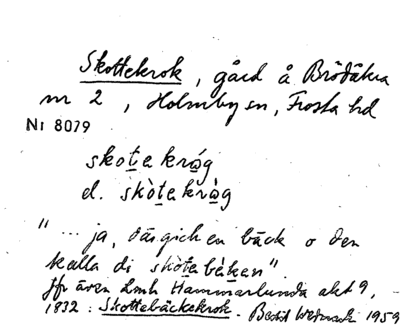 Skottekrok, gård å Brödåkra
nr 2, Holmby sn, Frosta hd
Nr 8079
skotekråg
el. skòtekràg
"... ja, där gick en bäck o den
kalla di skòtebäken".
Jfr även Lmh Hammarlunda akt 9,
1832: Skottebäckekrok. Bertil 1959